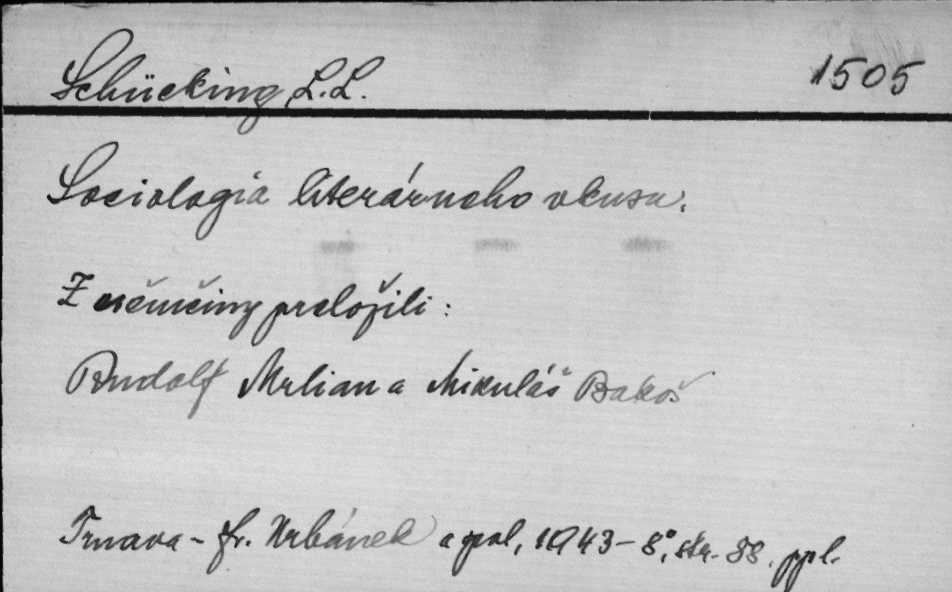 Schücking L.L. 1505
Sociologia literárneho vkusu.
Z němčiny preložili:
Rudolf Mrlian a Mikuláš Bakoš
Trnava - Fr. Urbánek a spol, 1943 - 8°, str. 88. ppl.